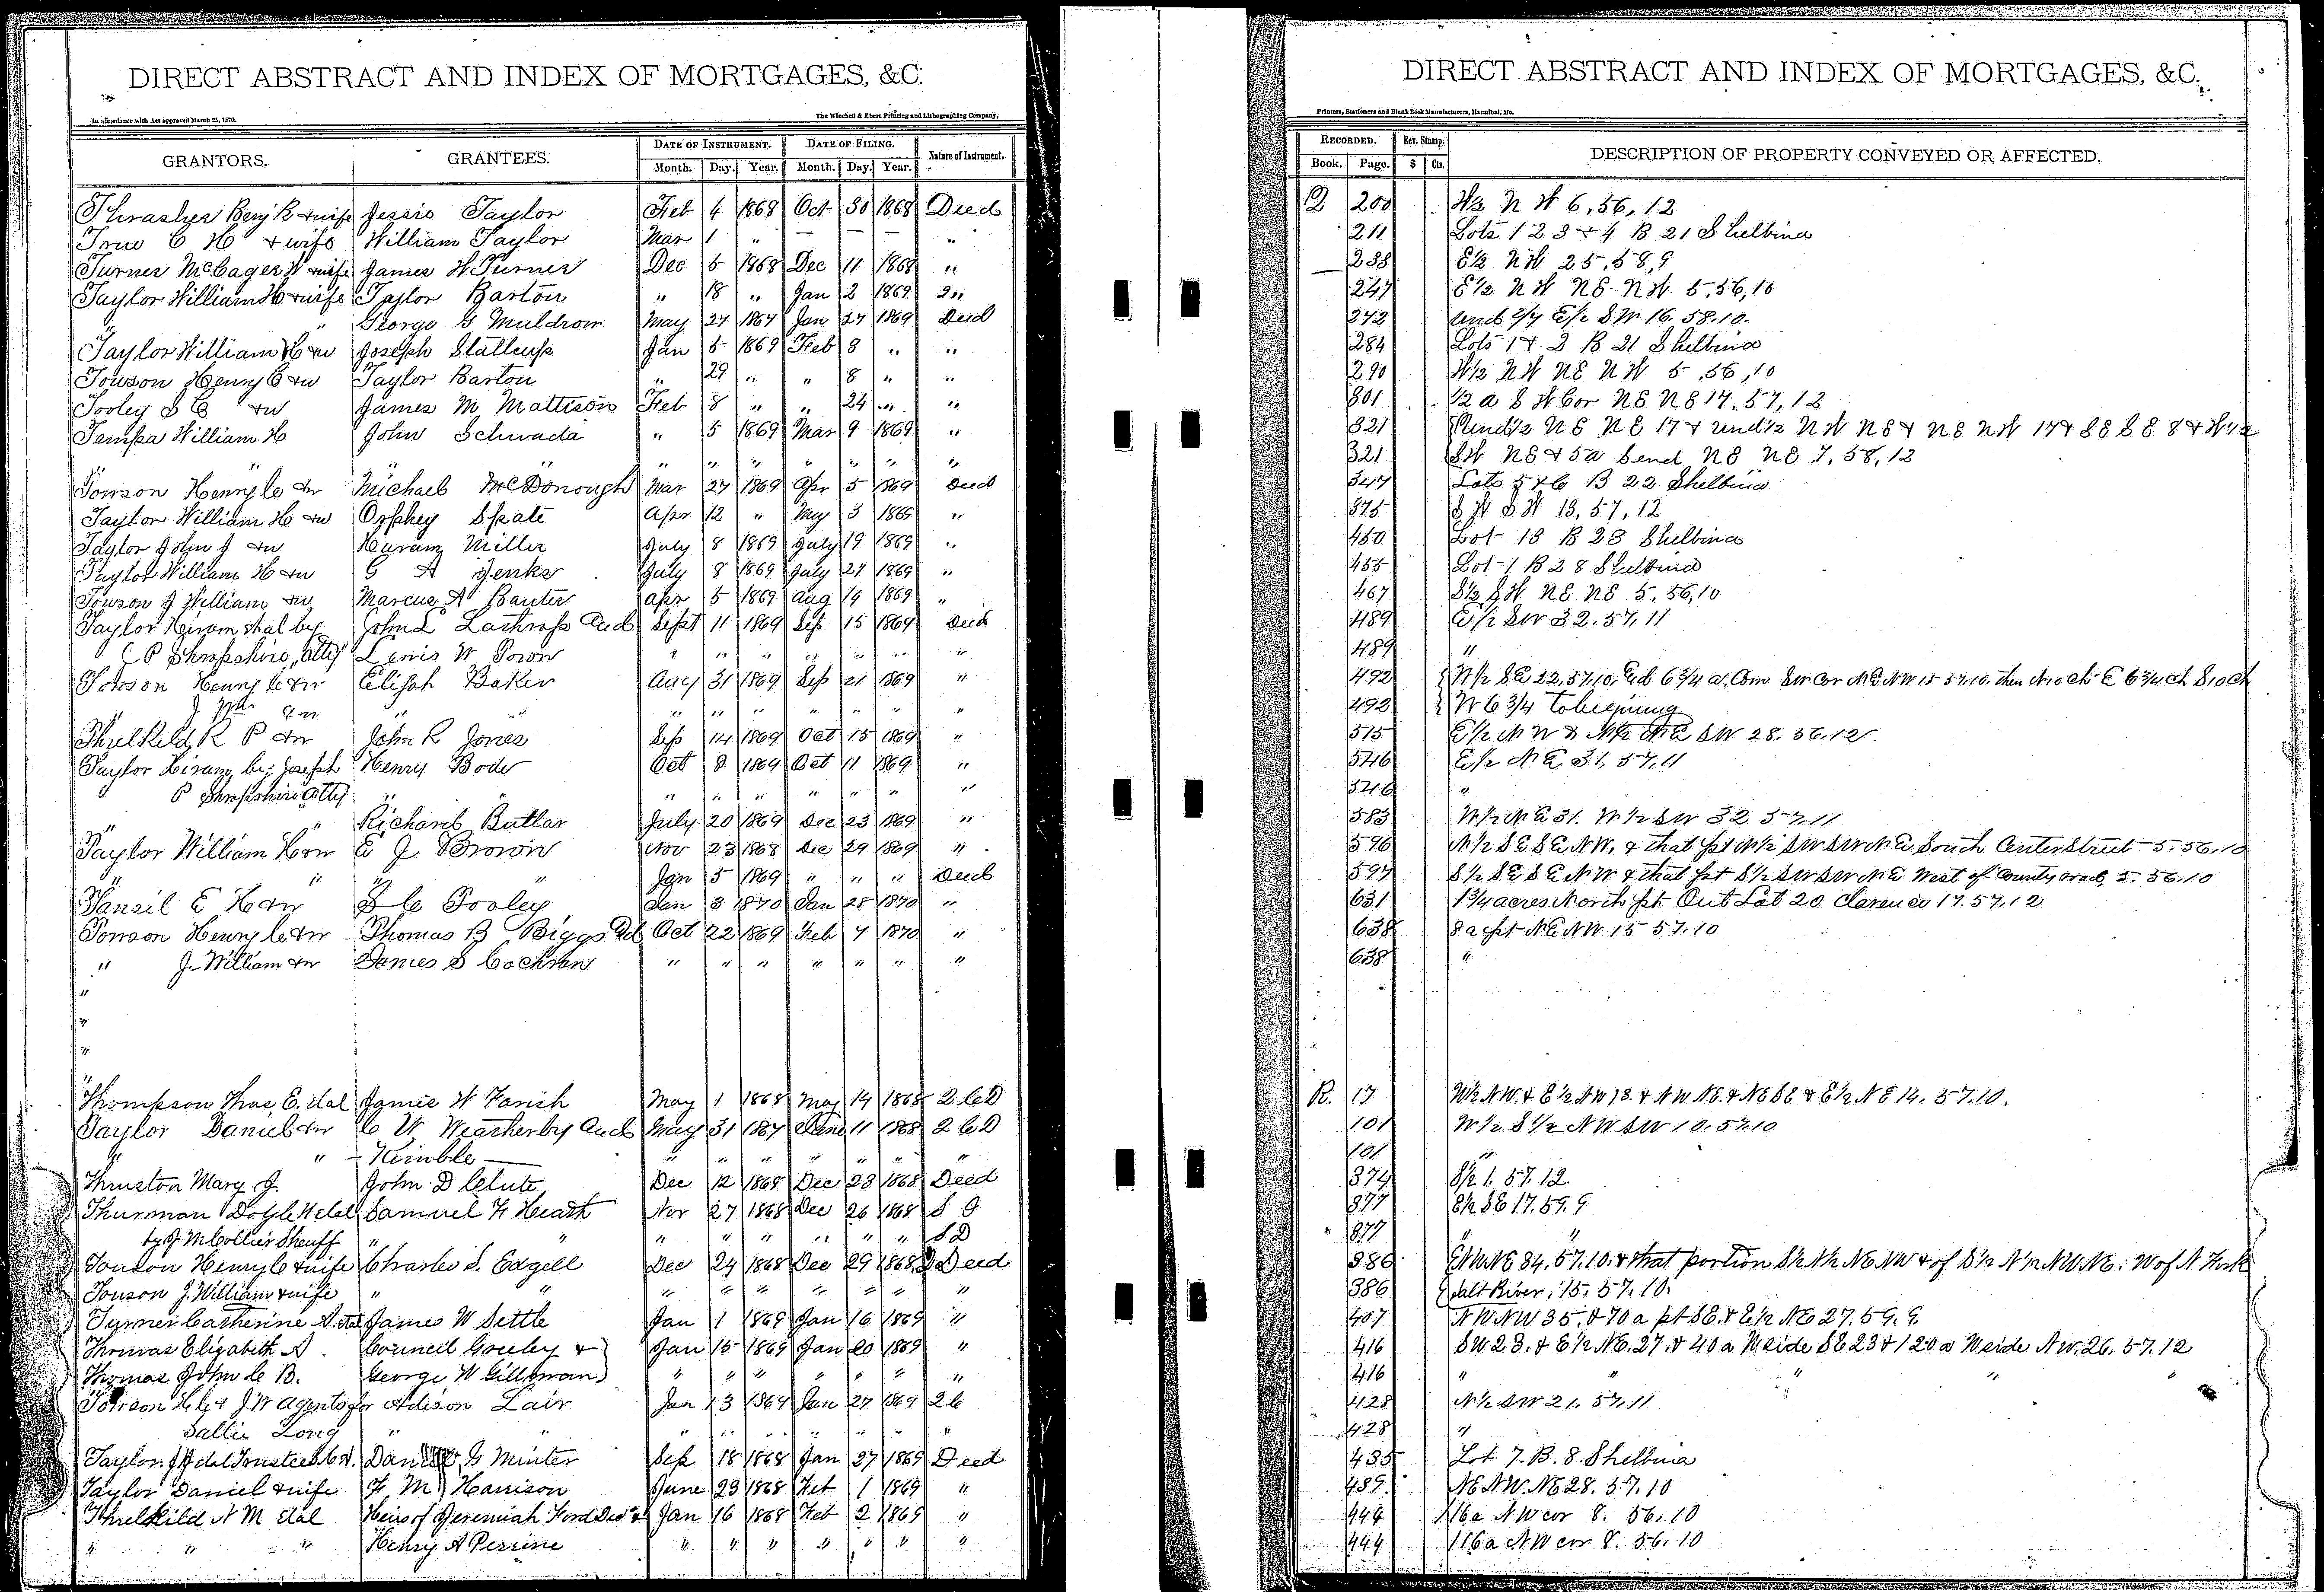 DIRECT ABSTRACT AND INDEX OF MORTGAGES, &C.
In accordance with Act approved March 25, 1870.
The Winchell & Ebert Printing and Lithographing Company,
GRANTORS. GRANTEES. DATE OF INSTRUMENT. DATE OF FILING. Nature of Instrument.
Month. Day. Year. Month. Day. Year.
Thrasher Benj B & wife Jessie Taylor Feb 4 1868 Oct 30 1868 Deed
True C H & wife William Taylor Mar 1 " — — — "
Turner McCager W & wife James W Turner Dec 5 1868 Dec 11 1868 "
Taylor William H & wife Taylor Barton " 18 " Jan 2 1869
" " George G Muldrow May 27 1867 Jan 27 1869 Deed
Taylor William H & w Joseph Stallcup Jan 5 1869 Feb 8 " "
Towson Henry C & w Taylor Barton " 29 " " 8 " "
Tooley S C & w James M Mattison Feb 8 " " 24 " "
William H John Schwada " 5 1869 Mar 9 1869 "
" " " " " " " " "
Towson Henry C & w Michael McDonough Mar 27 1869 Apr 5 1869 Deed
Taylor William H & w Orphey Apr 12 " May 3 1869 "
Taylor John J & w Miller July 8 1869 July 19 1869 "
Taylor William H & w G A Jenks July 8 1869 July 27 1869 "
Towson J William & w Marcus A Apr 5 1869 Aug 14 1869 "
Taylor Hiram et al by John L Lathrop And Sept 11 1869 Sep 15 1869 Deed
J P Shropshire "Atty" Lewis W " " " " " " "
Towson Henry C & w Elijah Baker Aug 31 1869 Sep 21 1869 "
" J Wm & w " " " " " " " " "
Thielkeld R P & w John R Jones Sep 14 1869 Oct 15 1869 "
Taylor Hiram by Joseph Henry Bode Oct 8 1869 Oct 11 1869 "
P Shropshire Atty " " " " " " " "
" " Richard Butlar July 20 1869 Dec 23 1869 "
Taylor William H & w E J Brown Nov 23 1868 Dec 29 1869 "
" " " " Jan 5 1869 " " " Deed
Tansil E H & w S C Tooley Jan 3 1870 Jan 28 1870 "
Towson Henry C & w Thomas B Biggs Oct 22 1869 Feb 7 1870 "
" J. William & w James S Cochran " " " " " " "
"
"
"
"
Thompson Thos. E. et al James W Farish May 1 1868 May 14 1868 2 C D
Taylor Daniel & w C W Weatherby And May 31 1867 June 11 1868 2 C D
" " - Kimble — " " " " " " "
Thruston Mary J. John D Clute Dec 12 1868 Dec 23 1868 Deed
Thurman Doyle H et al Samuel F Heath Nov 27 1868 Dec 26 1868 S D
by J M Collier Sheriff " " " " " " " " S D
Towson Henry C & wife Charles S. Edgell Dec 24 1868 Dec 29 1868 2 Deed
Towson J. William & wife " " " " " " " " "
Turner Catherine A. et al James W Settle Jan 1 1869 Jan 16 1869 "
Thomas Elizabeth A. Council Greeley & Jan 15 1869 Jan 20 1869 "
Thomas John C B. George W Gillman " " " " " " "
Towson H C & J W Agents for Adison Lair Jan 13 1869 Jan 27 1869 2 C
Sallie Long " " " " " " " " "
Taylor J H et al Trustees G Minter Sep 18 1868 Jan 27 1869 Deed
Taylor Daniel & wife F M Harrison June 23 1868 Feb 1 1869 "
Threlkild N M et al Heirs of Jeremiah Ford Dec'd & Jan 16 1868 Feb 2 1869 "
" " " Henry A Perrine " " " " " " "
DIRECT ABSTRACT AND INDEX OF MORTGAGES, &C.
Printers, Stationers and Blank Book Manufacturers, Hannibal, Mo.
RECORDED. Rev. Stamp. DESCRIPTION OF PROPERTY CONVEYED OR AFFECTED.
Book. Page. $ Cts.
Q 200 W½ N W 6, 56, 12
211 Lots 1 2 3 & 4 B 21 Shelbina
238 E½ NW 25, 58, 9
247 E½ N W NE NW 5, 56, 10
272 Und 2/7 E½ S W 16. 58. 10.
284 Lots 1 & 2 B 21 Shelbina
290 W½ N W NE N W 5, 56, 10
301 ½ a S W Cor NE NE 17, 57, 12
321 Und½ NE NE 17 & und½ N W NE & NE NW 17 & SE SE 8 & W½
321 SW NE & 5a Send NE NE 7, 58, 12
347 Lots 5 & 6 B 22 Shelbina
375 S W S W 13, 57, 12
450 Lot 18 B 23 Shelbina
455 Lot 1 B 28 Shelbina
467 S½ S W NE NE 5, 56, 10
489 E½ SW 32. 57. 11
489 "
492 W½ SE 22, 57. 10, 6¾ a. Com SW Cor NE NW 15 57. 10. then N 10 ch E 6¾ ch S 10 ch
492 W 6¾ to beginning
515 E½ N W & N½ NE SW 28. 56. 12
546 E½ NE 31, 57, 11
546 "
583 W½ NE 31. W½ SW 32 57. 11
596 N½ SE SE NW, & that pt N½ SW SW NE South Center Street 5. 56. 10
597 S½ SE SE NW & that pt S½ SW SW NE West of County road, 5. 56. 10
631 1¾ acres North pt Out Lot 20 Clarence 17. 57. 12
638 8 a pt NE NW 15 57. 10
638 "
R. 17 W½ NW. & E½ NW 13. & NW NE. & NE SE & E½ NE 14. 57. 10.
101 W½ S½ NW SW 10. 57. 10
101 "
374 S½ 1. 57. 12.
377 E½ SE 17. 59. 9
377 " "
386 E½ NE 34. 57. 10. & that portion S½ N½ NE NW & of S½ N½ NW NE: W of N Fork
386 Salt River, 15. 57. 10.
407 NW NW 35, & 70 a pt SE. & E½ NE 27. 59. 9.
416 SW 23. & E½ NE. 27. & 40 a W side SE 23 & 120 a W side NW. 26. 57. 12
416 " " " "
428 N½ SW 21. 57. 11
428 "
435 Lot 7. B. 8. Shelbina
439 NE NW. NE 28. 57. 10
444 116a NW cor 8. 56. 10
444 116a NW cor 8. 56. 10